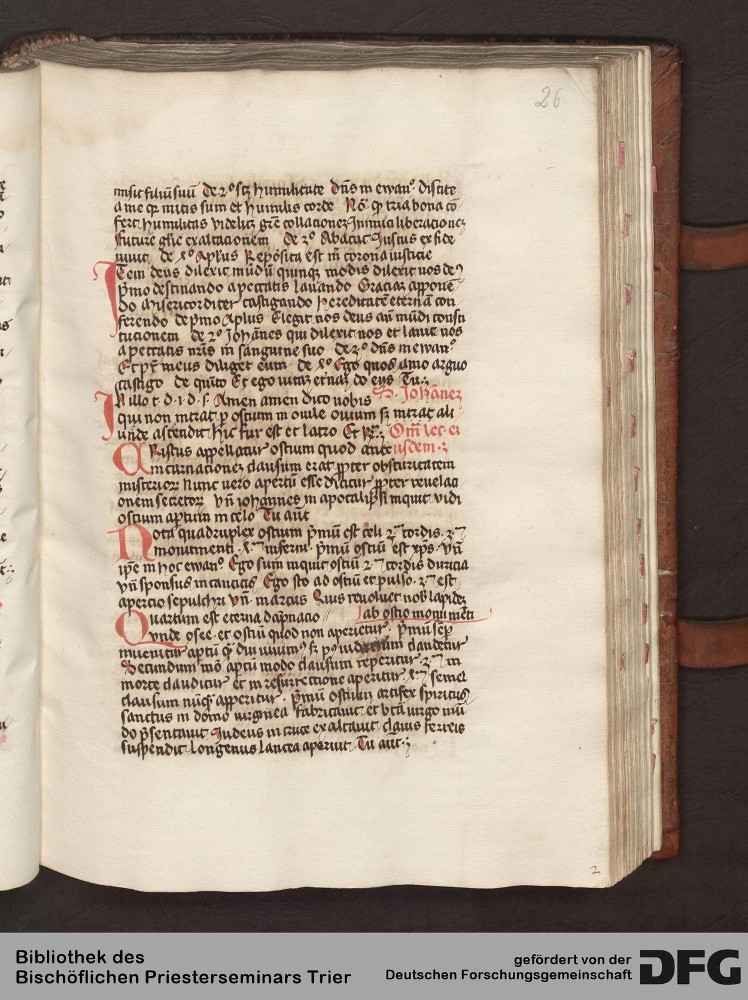 26
misit filiū suū De 2º scz humilitate Dn̄s in ewanº Discite
a me qz mitis sum et humilis corde Nō qz tria bona cō
fert humilitas videlicz grē collationez Inimici liberationez
future glīe exaltacionem de 3º Abacuc Iustus ex fide
viuit de Aplus Reposita est m̄ corona iusticie
Item deus dilexit mūdū quinqz modis dilexit nos
p̄mo destinando a peccatis lauando Gracias
do Misericorditer castigando hereditatē eternā con
ferendo de p̄mo Aplus Elegit nos deus an̄ mūdi consti
tucionem de 2º Johānes qui dilexit nos et lauit nos
a peccatis nr̄is in sanguine suo de 3º dn̄s in ewanº
Et pr̄ meus diliget eum de Ego quos amo arguo
castigo de quīto Et ego vitā eternā do eys Tu
In illo t. d. i. d. s. Amen amen dico vobis Johānez
qui non intrat p ostium in ouile ouium sz intrat ali
unde ascendit hic fur est et latro Et Om̄ lec. ei
Cristus appellatur ostium quod ante usdem
incarnacionez clausum erat ꝓpter obscuritatem
misterior Nunc vero apertū esse dicitur ꝓpter reuelaci
onem secretor vn̄ iohannes in apocalipsi inquit vidi
ostium aptum in celo Tu aūt
Nota quadruplex ostium p̄mū est celi 2 cordis. 3
monumenti. inferni. p̄mū ostiū est xp̄s. vn̄
ip̄e in hoc ewanº Ego sum inquit ostiū 2 cordis duricia
vn̄ sponsus in canticis Ego sto ad ostiū et pulso. 3 est
apercio sepulchri vn̄ marcus Quis reuoluet nob̄ lapidez
Quartum est eterna dāpnacio ab ostio monumēti
vnde osee et ostiū quod non aperietur. p̄mū semp
inuenitur aptū qdiu viuimus sz clauditur
Secundum mō aptū modo clausum reperitur 3 in
morte clauditur et in resurrectione aperitur semel
clausum nūqz apperitur. p̄mū ostium artifex spiritus
sanctus in domo virginea fabricauit et bt̄a virgo mū
do p̄sentauit Iudeus in cruce exaltauit clauis ferreis
suspendit Longenus lancea aperiuit Tu aūt
2
Bibliothek des
Bischöflichen Priesterseminars Trier
gefördert von der
Deutschen Forschungsgemeinschaft
DFG